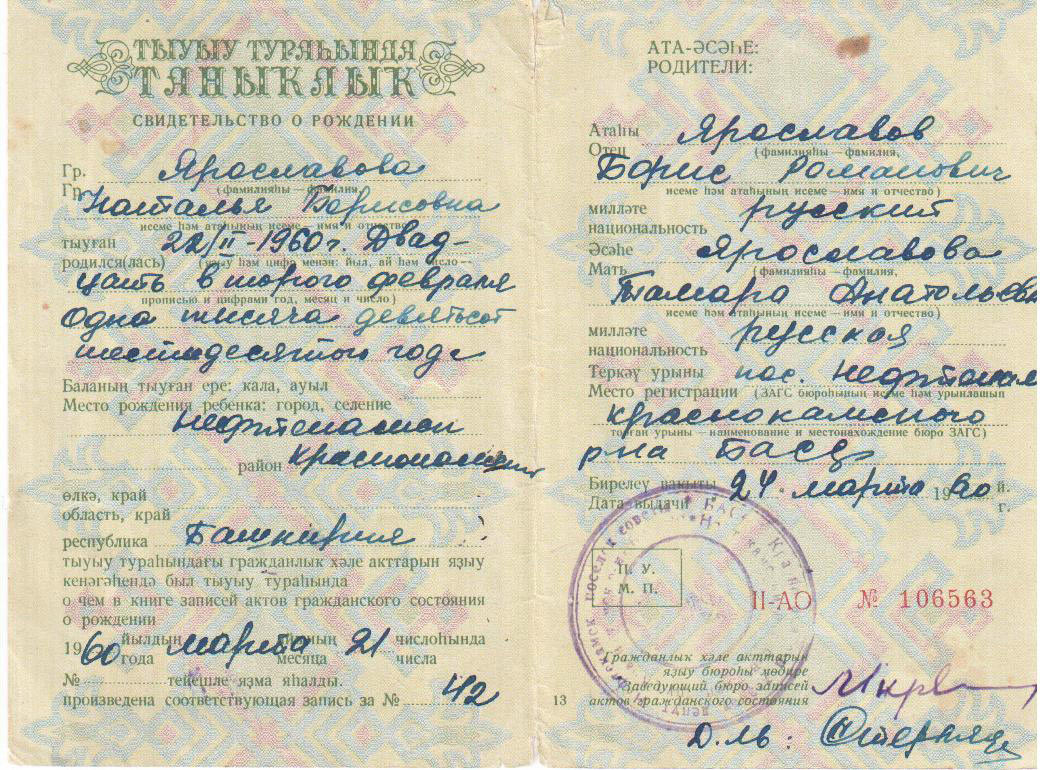 ТЫУЫУ ТУРАҺЫНДА
ТАНЫКЛЫК
СВИДЕТЕЛЬСТВО О РОЖДЕНИИ
Гр. Ярославова
(фамилияһы — фамилия,
Гр. Наталья Борисовна
исеме һәм атаһының исеме — имя и отчество)
тыуған 22/II-1960 г. Двад-
родился(лась)
цать второго февраля
прописью и цифрами год, месяц и число)
одна тысяча девятьсот
шестидесятого года
Баланың тыуған ере: кала, ауыл
Место рождения ребенка: город, селение
Нефтекамск
район Краснокамский
өлкә, край
область, край
республика Башкирия
тыуыу тураһындағы гражданлык хәле акттарын яҙыу
кенәгәһендә был тыуыу тураһында
о чем в книге записей актов гражданского состояния
о рождении
1960 йылдың марта айының 21 числоһында
года месяца числа
№ тейешле яҙма яһалды.
произведена соответствующая запись за № 42
АТА-ӘСӘҺЕ:
РОДИТЕЛИ:
Атаһы Ярославов
Отец (фамилияһы — фамилия,
Борис Романович
исеме һәм атаһының исеме — имя и отчество)
милләте русский
национальность
Әсәһе Ярославова
Мать (фамилияһы — фамилия,
Тамара Анатольевна
исеме һәм атаһының исеме — имя и отчество)
милләте русская
национальность
Теркәү урыны пос. Нефтекамск
Место регистрации (ЗАГС бюроһының исеме һәм урынлашып
Краснокамского
торған урыны — наименование и местонахождение бюро ЗАГС)
р-на БАССР
Бирелеү вакыты 24 марта 1960 й.
Дата выдачи г.
П. У.
М. П.
II-АО № 106563
Гражданлык хәле акттарын
яҙыу бюроһы мөдире
Заведующий бюро записей
актов гражданского состояния
13
Д-ль: